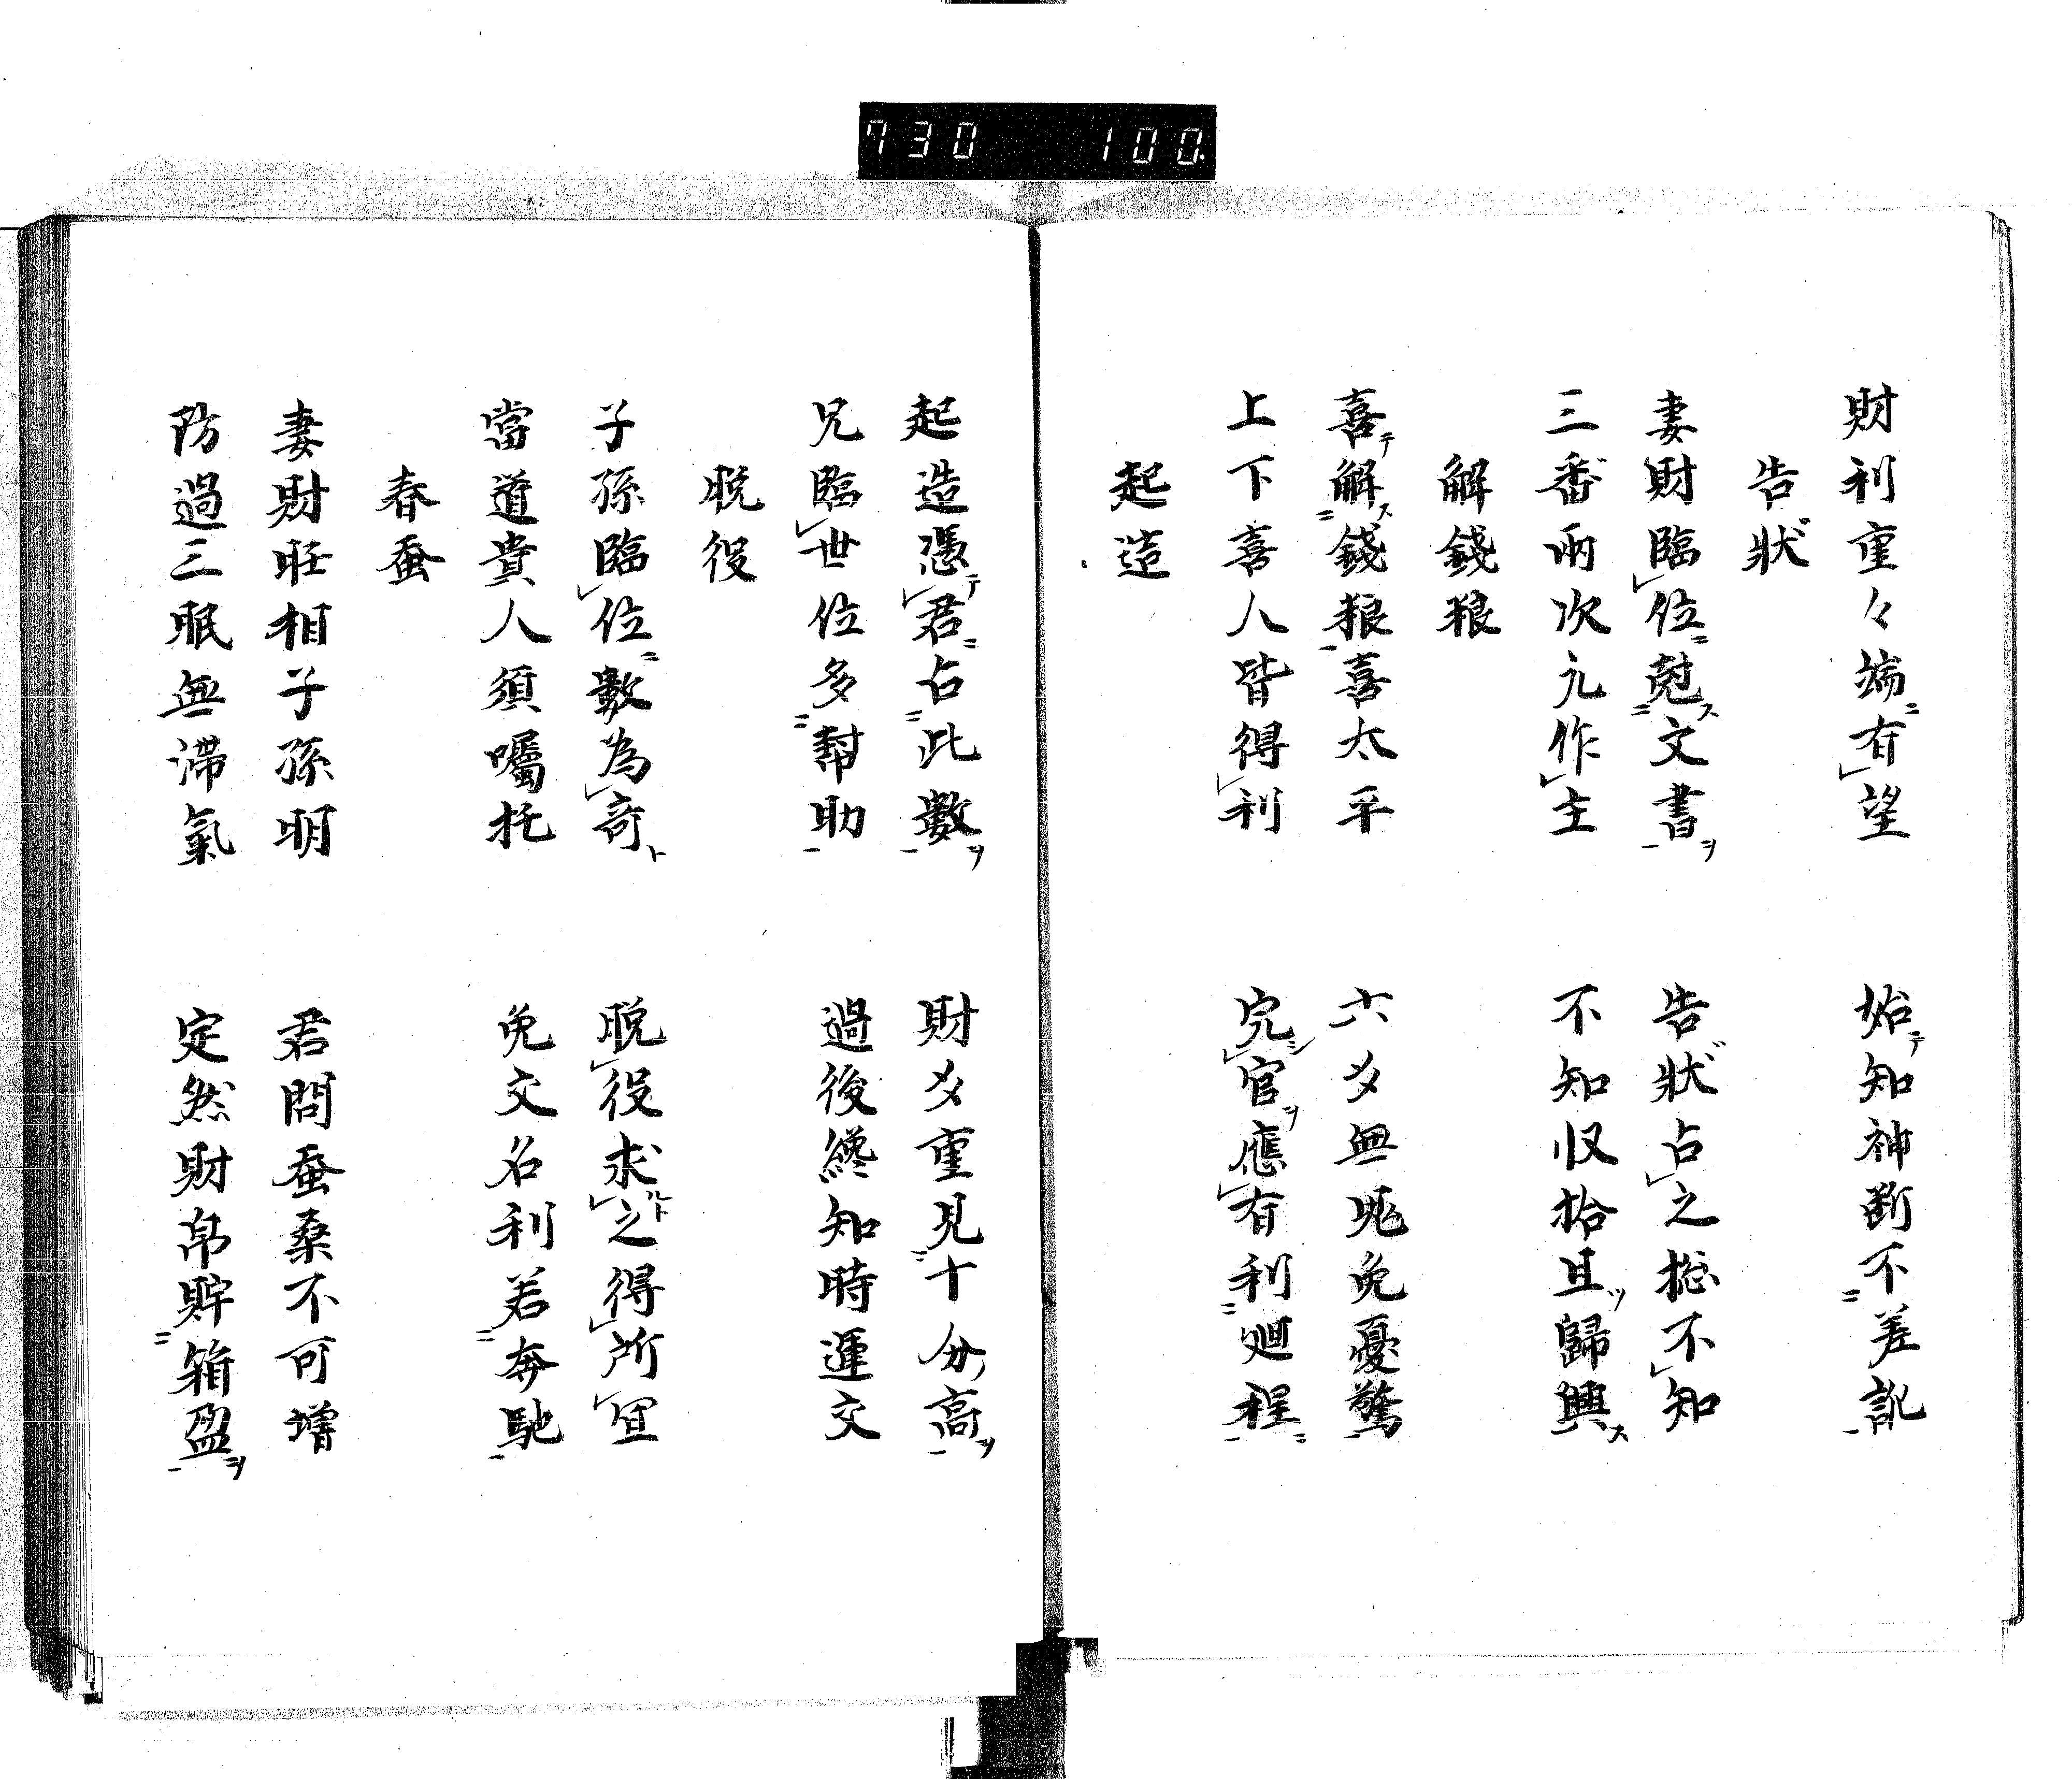 730 100.
財利重々端有望 始知神断不差訛
告狀
妻財臨位尅文書 告狀占之捴不知
三番兩次元作主 不知収拾且歸興
解錢粮
喜解錢粮喜太平 六爻無凩免憂驚
上下喜人皆得利 完官應有利廻程
起造
起造憑君占此數 財爻重見十分高
兄臨世位多幇助 過後纔知時運交
脱役
子孫臨位數為奇 脱役求之得所宜
當道貴人須囑托 免文名利若奔馳
春蚕
妻財旺相子孫明 君問蚕桑不可增
防過三眠無滞氣 定然財帛貯箱盈